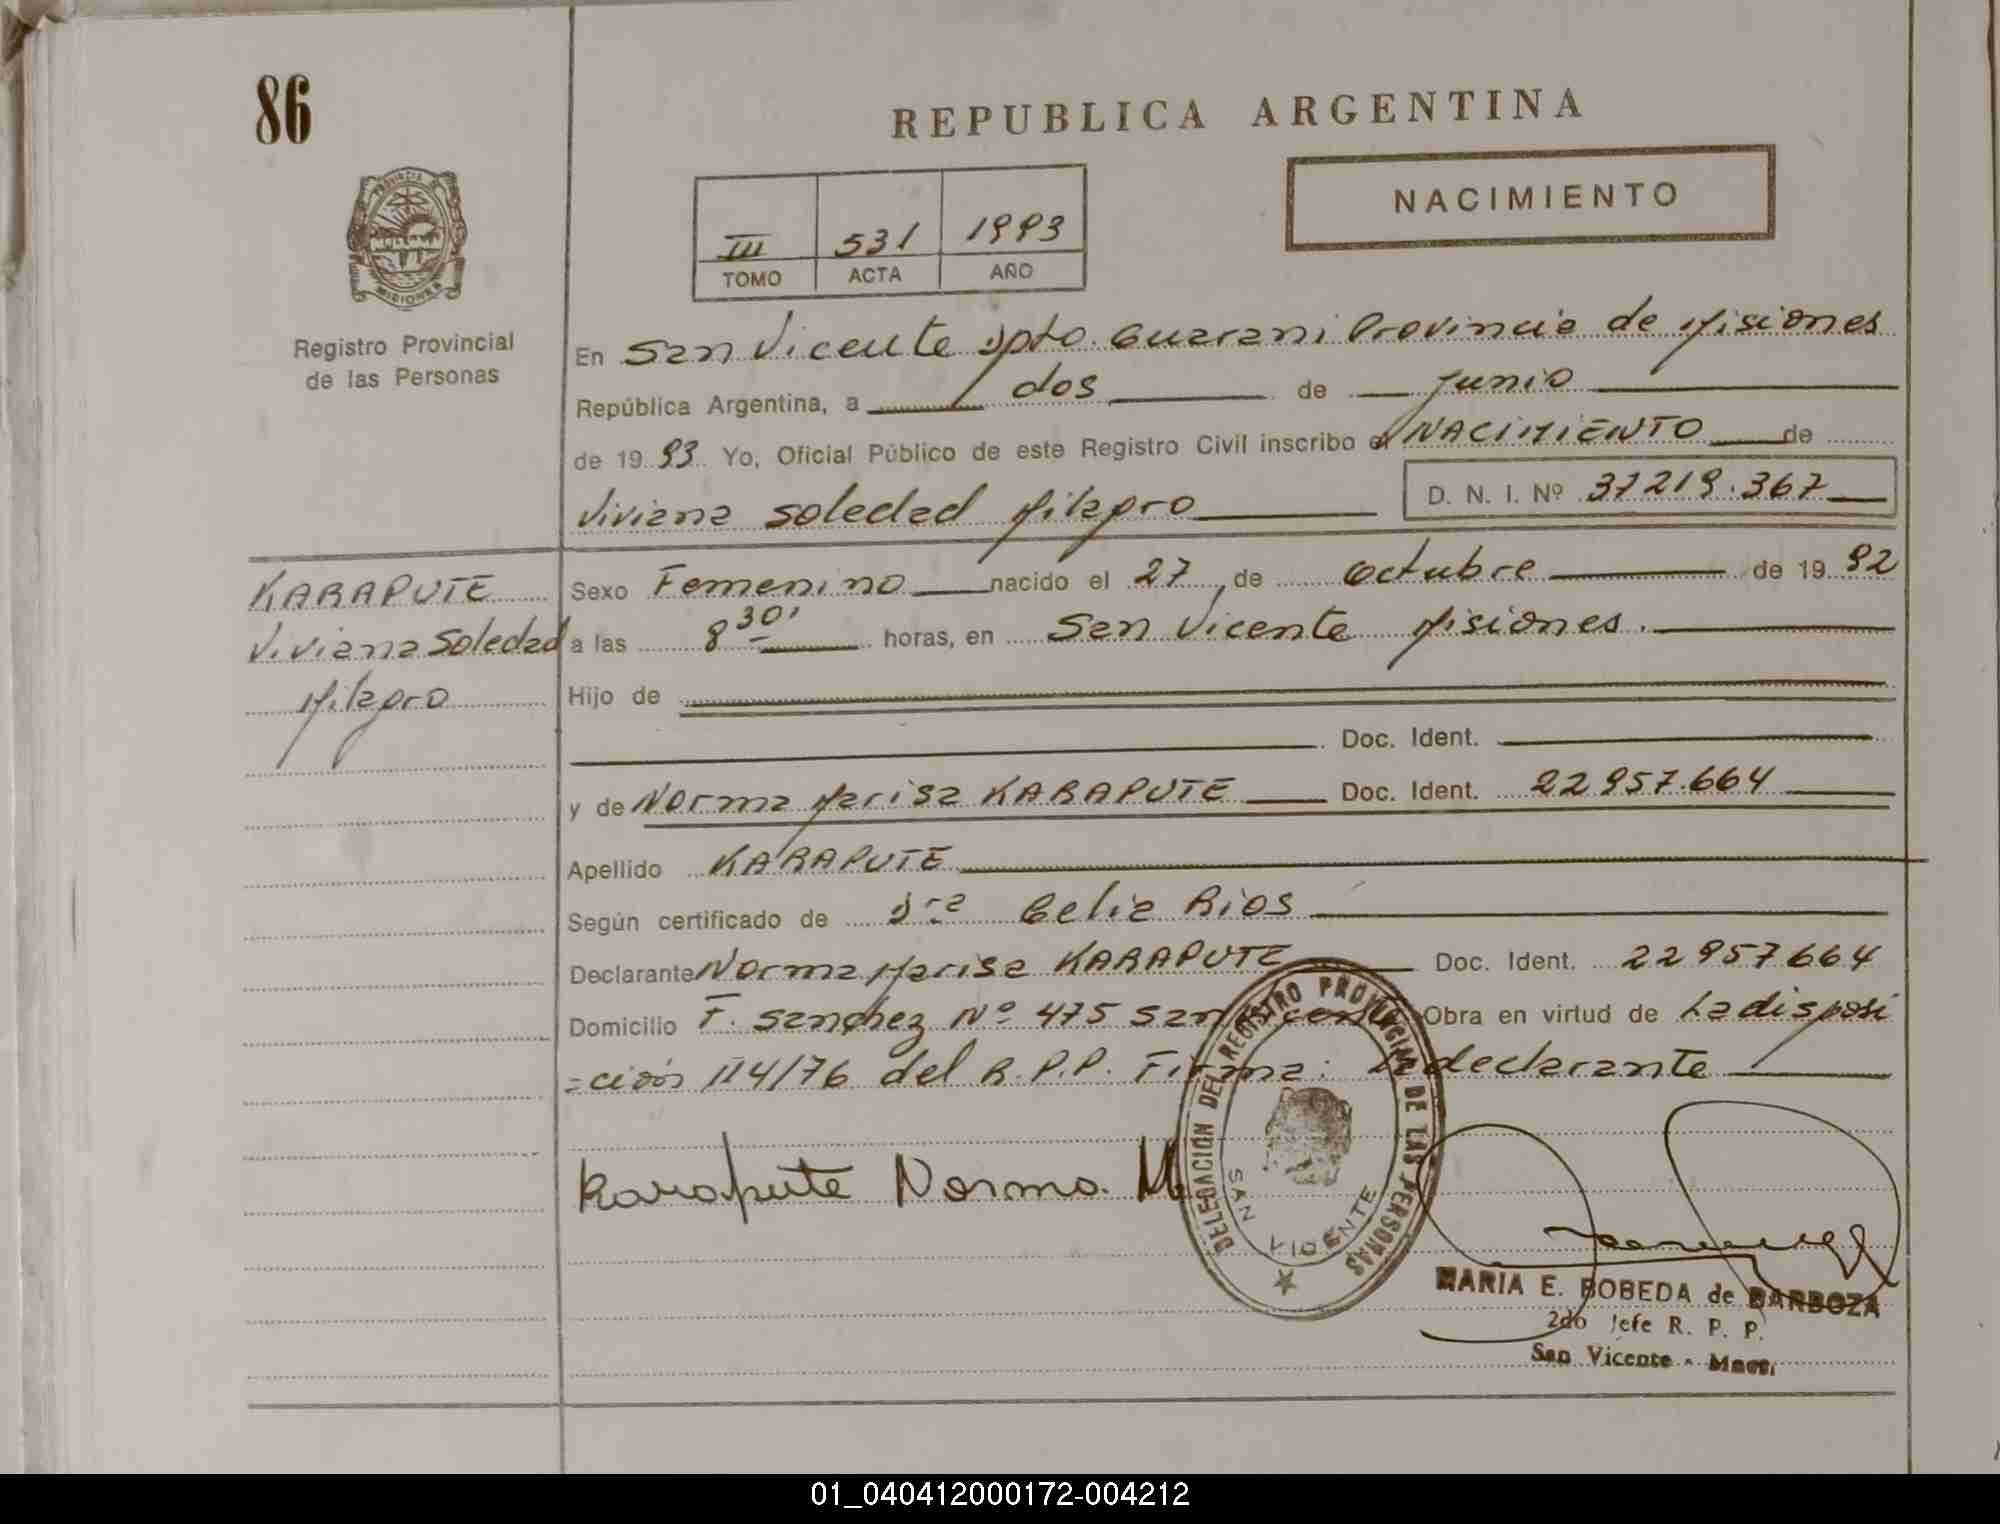 86
REPUBLICA ARGENTINA
NACIMIENTO
III 531 1993
TOMO ACTA AÑO
PROVINCIA DE MISIONES
Registro Provincial
de las Personas
En San Vicente Dpto. Guarani Provincia de Misiones
República Argentina, a dos de Junio
de 19 93 Yo, Oficial Público de este Registro Civil inscribo el NACIMIENTO de
Viviana Soledad Milagro D. N. I. Nº 37219.367
KARAPUTE
Viviana Soledad
Milagro
Sexo Femenino nacido el 27 de octubre de 19 92
a las 8 30' horas, en San Vicente Misiones.
Hijo de
Doc. Ident.
y de Norma Marisa KARAPUTE Doc. Ident. 22957.664
Apellido KARAPUTE
Según certificado de Dra Celia Rios
Declarante Norma Marisa KARAPUTE Doc. Ident. 22957664
Domicilio F. Sanchez Nº 475 San Vicente Obra en virtud de La disposi
=ción 114/76 del R.P.P. Firma: La declarante
Karapute Norma. M
DELEGACION DEL REGISTRO PROVINCIAL DE LAS PERSONAS
SAN VICENTE
MARIA E. BOBEDA de BARBOZA
2do Jefe R. P. P.
San Vicente - Mnes.
01_040412000172-004212